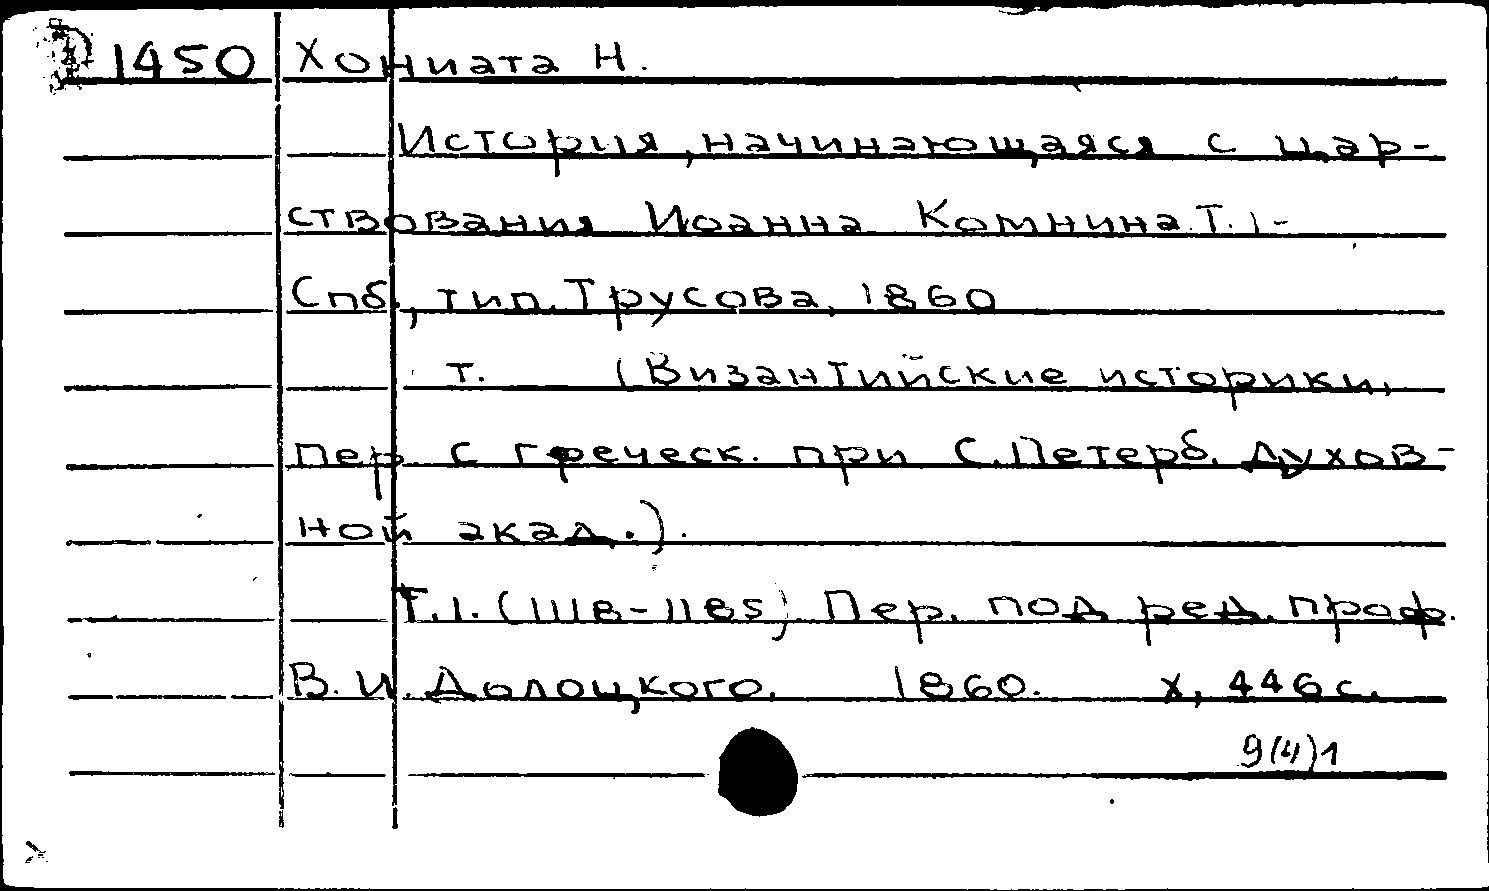 1450 Хониата Н.
История, начинающаяся с цар-
ствования Иоанна Комнина. Т. 1 -
Спб., тип. Трусова, 1860
т. (Византийские историки,
пер с греческ. при С. Петерб. духов-
ной акад.).
Т. 1. (1118-1185) Пер. под ред. проф.
В. И. Долоцкого. 1860. X, 446 с.
9(4)1